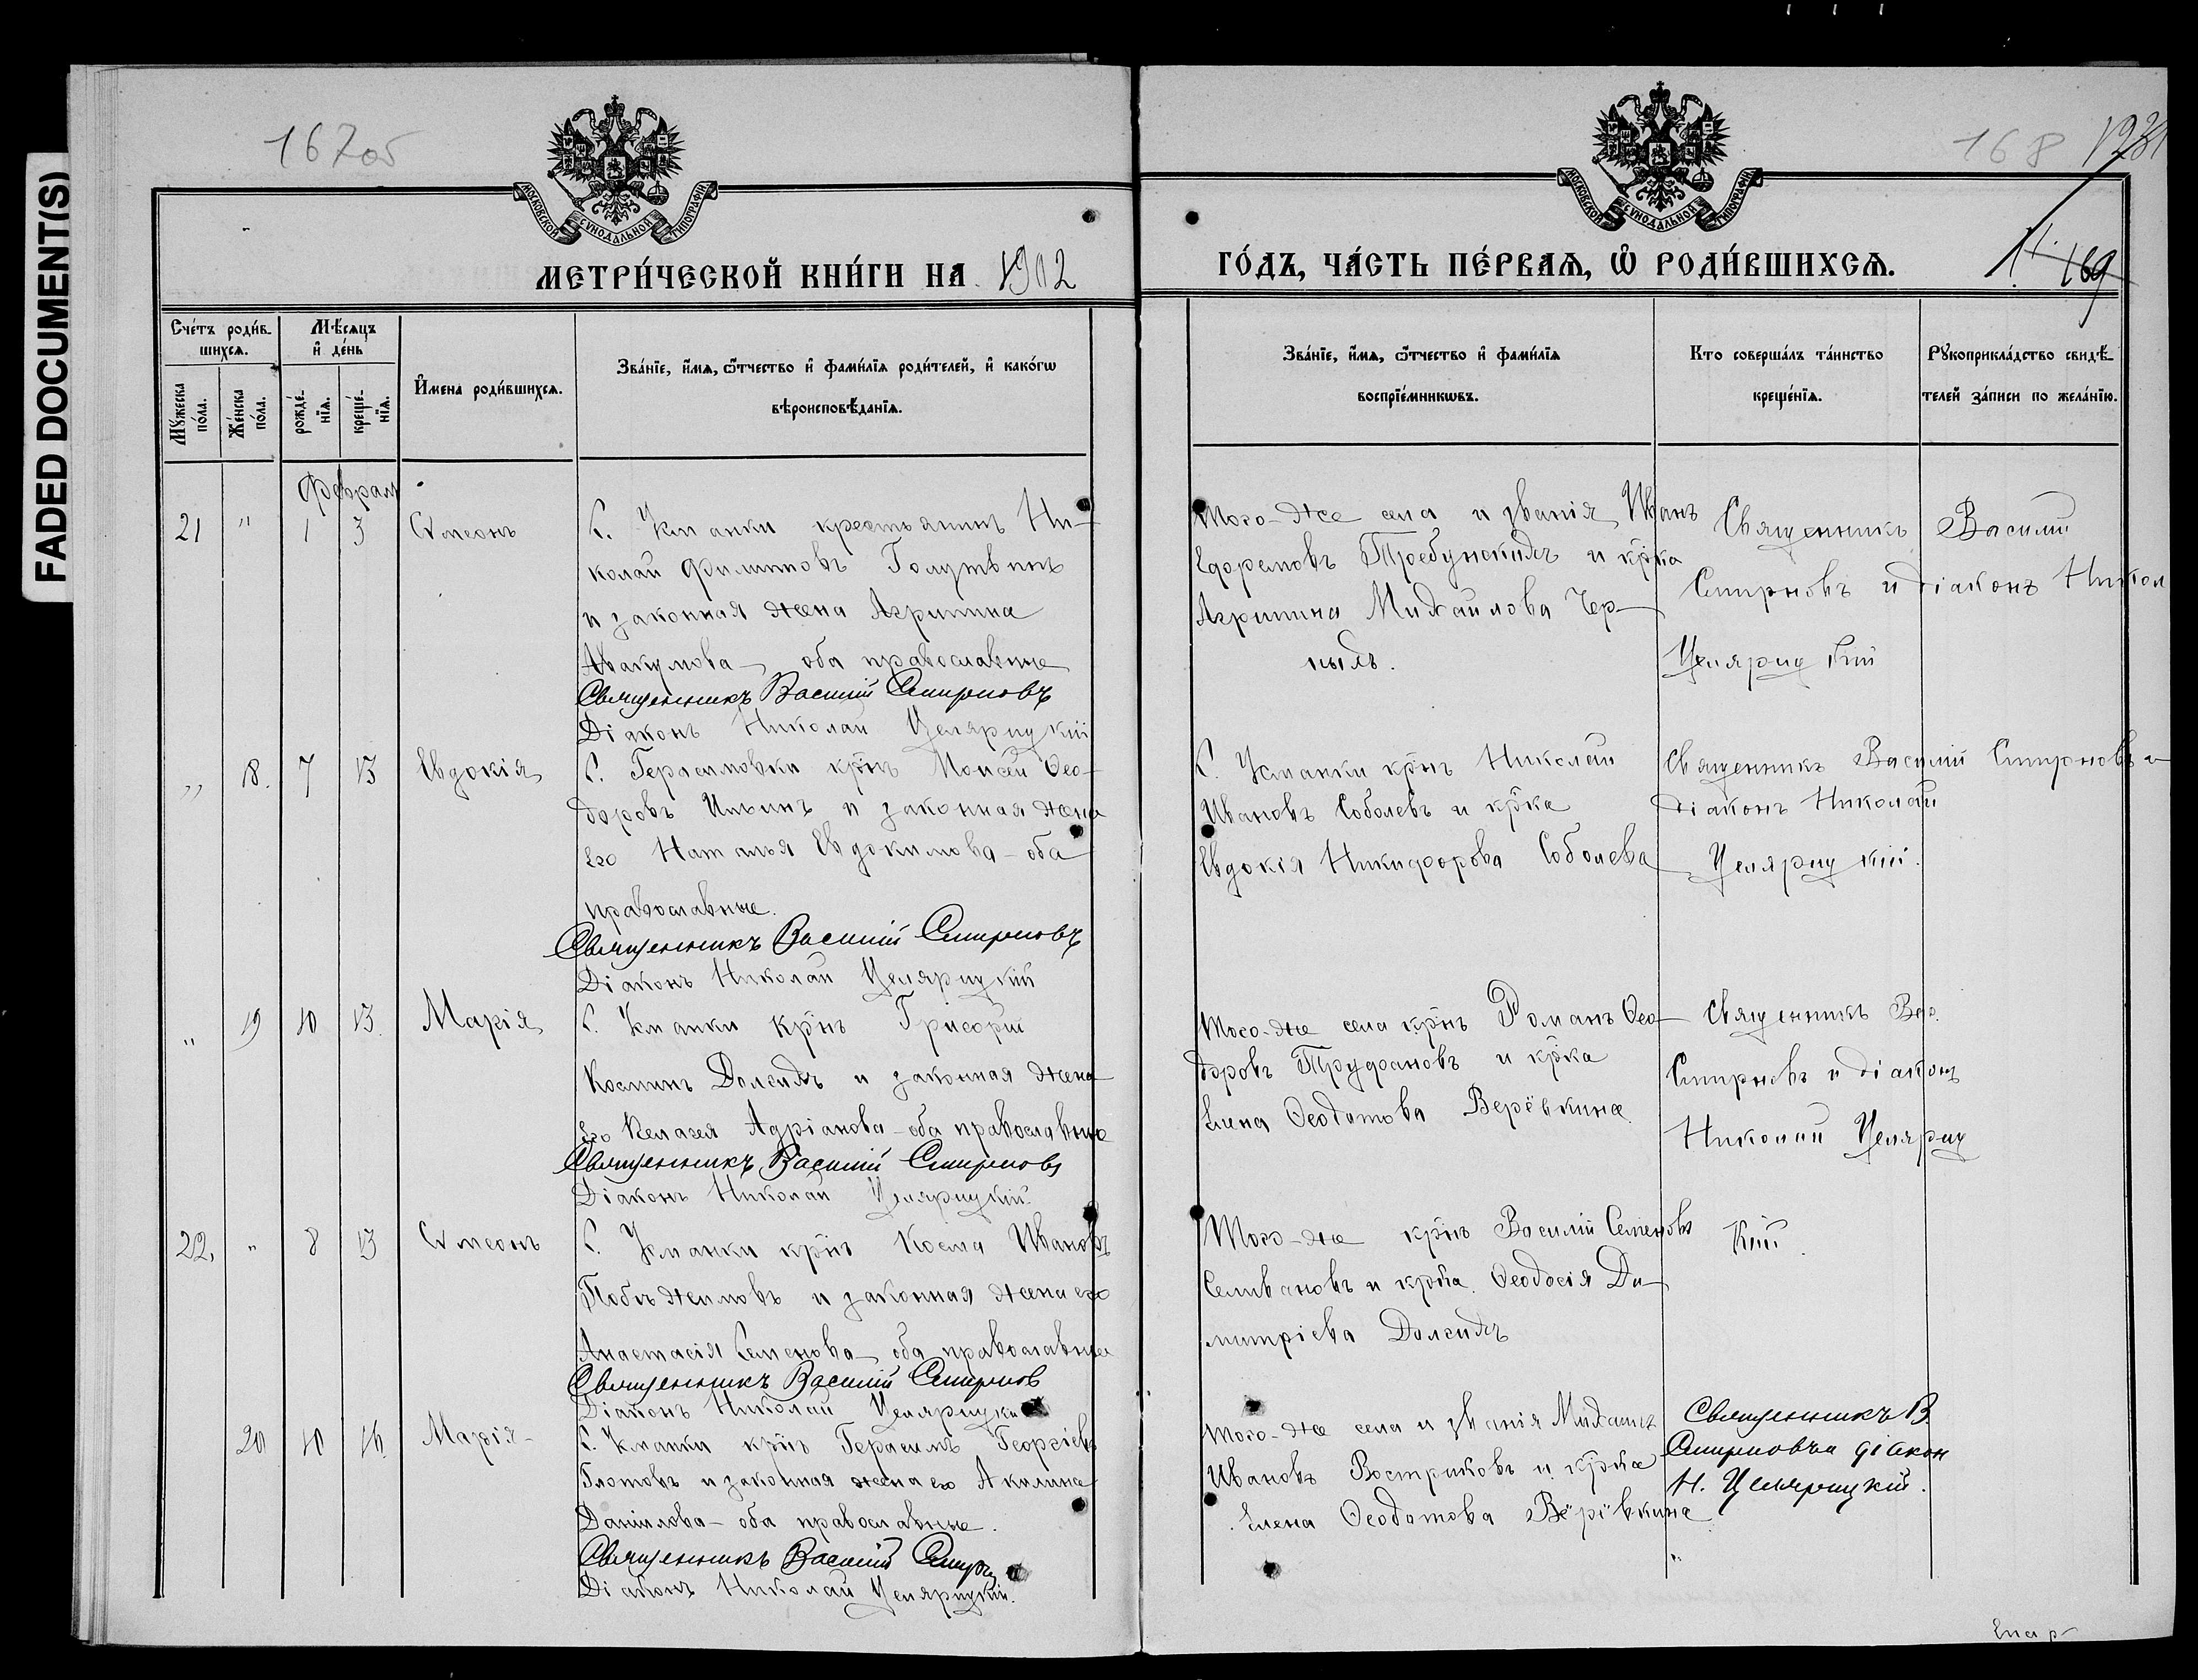 FADED DOCUMENT(S)
167об
168
МОСКОВСКОЙ СУНОДАЛЬНОЙ ТИПОГРАФІИ
МОСКОВСКОЙ СУНОДАЛЬНОЙ ТИПОГРАФІИ
МЕТРИ́ЧЕСКОЙ КНИ́ГИ НА 1902
ГО́ДЪ, ЧА́СТЬ ПЕ́РВАЯ, Ѿ РОДИ́ВШИХСЯ.
169
Сче́тъ роди́в-
шихся.
Мꙋ́жеска
по́ла.
Же́нска
по́ла.
Мѣ́сяцъ
и҆ де́нь
рожде́-
нїя.
креще́-
нїя.
И҆мена роди́вшихся.
Зва́нїе, и҆́мя, ѻ҆́тчество и҆ фами́лїя роди́телей, и҆ како́гѡ
вѣроисповѣ́данїя.
Зва́нїе, и҆́мя, ѻ҆́тчество и҆ фами́лїя
воспрїе́мникѡвъ.
Кто соверша́лъ та́инство
креще́нїя.
Рꙋкоприкла́дство свидѣ́-
телей за́писи по жела́нїю.
Феврал
21 " 1 3 Сѵмеонъ
С. Усманки крестьянинъ Ни-
колай Филиповъ Голутвинъ
и законная жена Агрипина
Авакумова – оба православные
Священникъ Василій Смирновъ
Діаконъ Николай Целярицкій
Того-же села и званія Иванъ
Ефремовъ Требунскихъ и кр̃ка
Агрипина Михаилова Чер-
ныхъ.
Священникъ Василій
Смирновъ и діаконъ Никол
Целярицкій
" 18. 7 13 Евдокія
С. Герасимовки кр̃нъ Моисей Ѳео-
доровъ Ильинъ и законная жена
его Наталья Евдокимова – оба
православные.
Священникъ Василій Смирновъ
Діаконъ Николай Целярицкій
С. Усманки кр̃нъ Николай
Ивановъ Соболевъ и кр̃ка
Евдокія Никифорова Соболева
Священникъ Василій Смирновъ и
діаконъ Николай
Целярицкій.
" 19 10 13. Марія
С. Усманки кр̃нъ Григорій
Косминъ Долгихъ и законная жена
его Пелагея Адріанова – оба православные
Священникъ Василій Смирновъ
Діаконъ Николай Целярицкій.
Того-же села кр̃нъ Романъ Ѳео-
доровъ Труфановъ и кр̃ка
Елена Ѳеодотова Верёвкина
Священникъ Вас.
Смирновъ и діаконъ
Николай Целяриц
22, " 8 13 Сѵмеонъ
С. Усманки кр̃нъ Косма Ивановъ
Побѣжимовъ и законная жена его
Анастасія Семенова – оба православные
Священникъ Василій Смирнов
Діаконъ Николай Целярицкій
Того-же кр̃нъ Василій Семеновъ
Селивановъ и кр̃ка Ѳеодосія Ди-
митріева Долгихъ
кій.
20 10 16. Марія –
С. Усманки кр̃нъ Герасимъ Георгіевъ
Глотовъ и законная жена его Акилина
Даніилова – оба православные.
Священникъ Василій Смирн
Діаконъ Николай Целярицкій.
Того-же села и званія Михаилъ
Ивановъ Востриковъ и кр̃ка
Елена Ѳеодотова Верёвкина
Священникъ В.
Смирновъ и діакон
Н. Целярицкій.